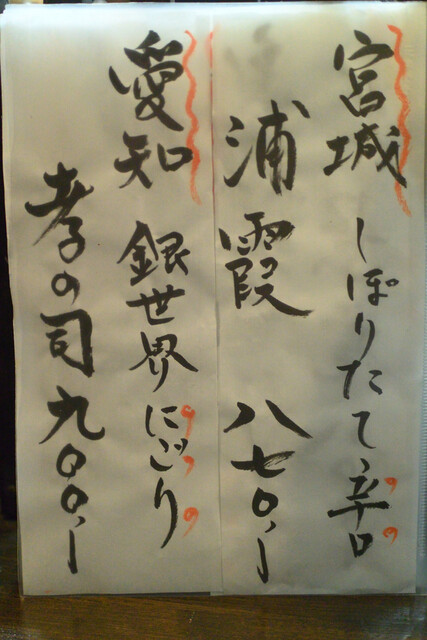 宮城 しぼりたて辛口
浦霞 八七〇、ー
愛知 銀世界にごり
孝の司 九〇〇、ー